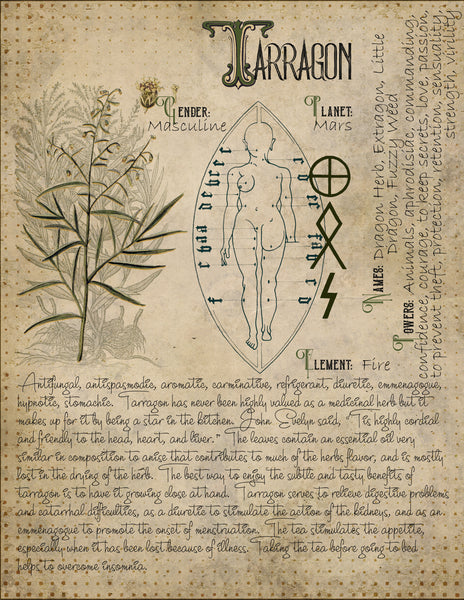 TARRAGON
GENDER:
Masculine
PLANET:
Mars
ELEMENT: Fire
NAMES: Dragon Herb, Extragon, Little
Dragon, Fuzzy Weed
POWERS: Animals, aphrodisiac, commanding,
confidence, courage, to keep secrets, love, passion,
to prevent theft, protection, retention, sensuality,
strength, virility
Antifungal, antispasmodic, aromatic, carminative, refrigerant, diuretic, emmenagogue,
hypnotic, stomachic. Tarragon has never been highly valued as a medicinal herb but it
makes up for it by being a star in the kitchen. John Evelyn said, "Tis highly cordial
and friendly to the head, heart, and liver." The leaves contain an essential oil very
similar in composition to anise that contributes to much of the herb, flavor, and is mostly
lost in the drying of the herb. The best way to enjoy the subtle and tasty benefits of
tarragon is to have it growing close at hand. Tarragon serves to relieve digestive problems
and catarrhal difficulties, as a diuretic to stimulate the action of the kidneys, and as an
emmenagogue to promote the onset of menstruation. The tea stimulates the appetite,
especially when it has been lost because of illness. Taking the tea before going to bed
helps to overcome insomnia.